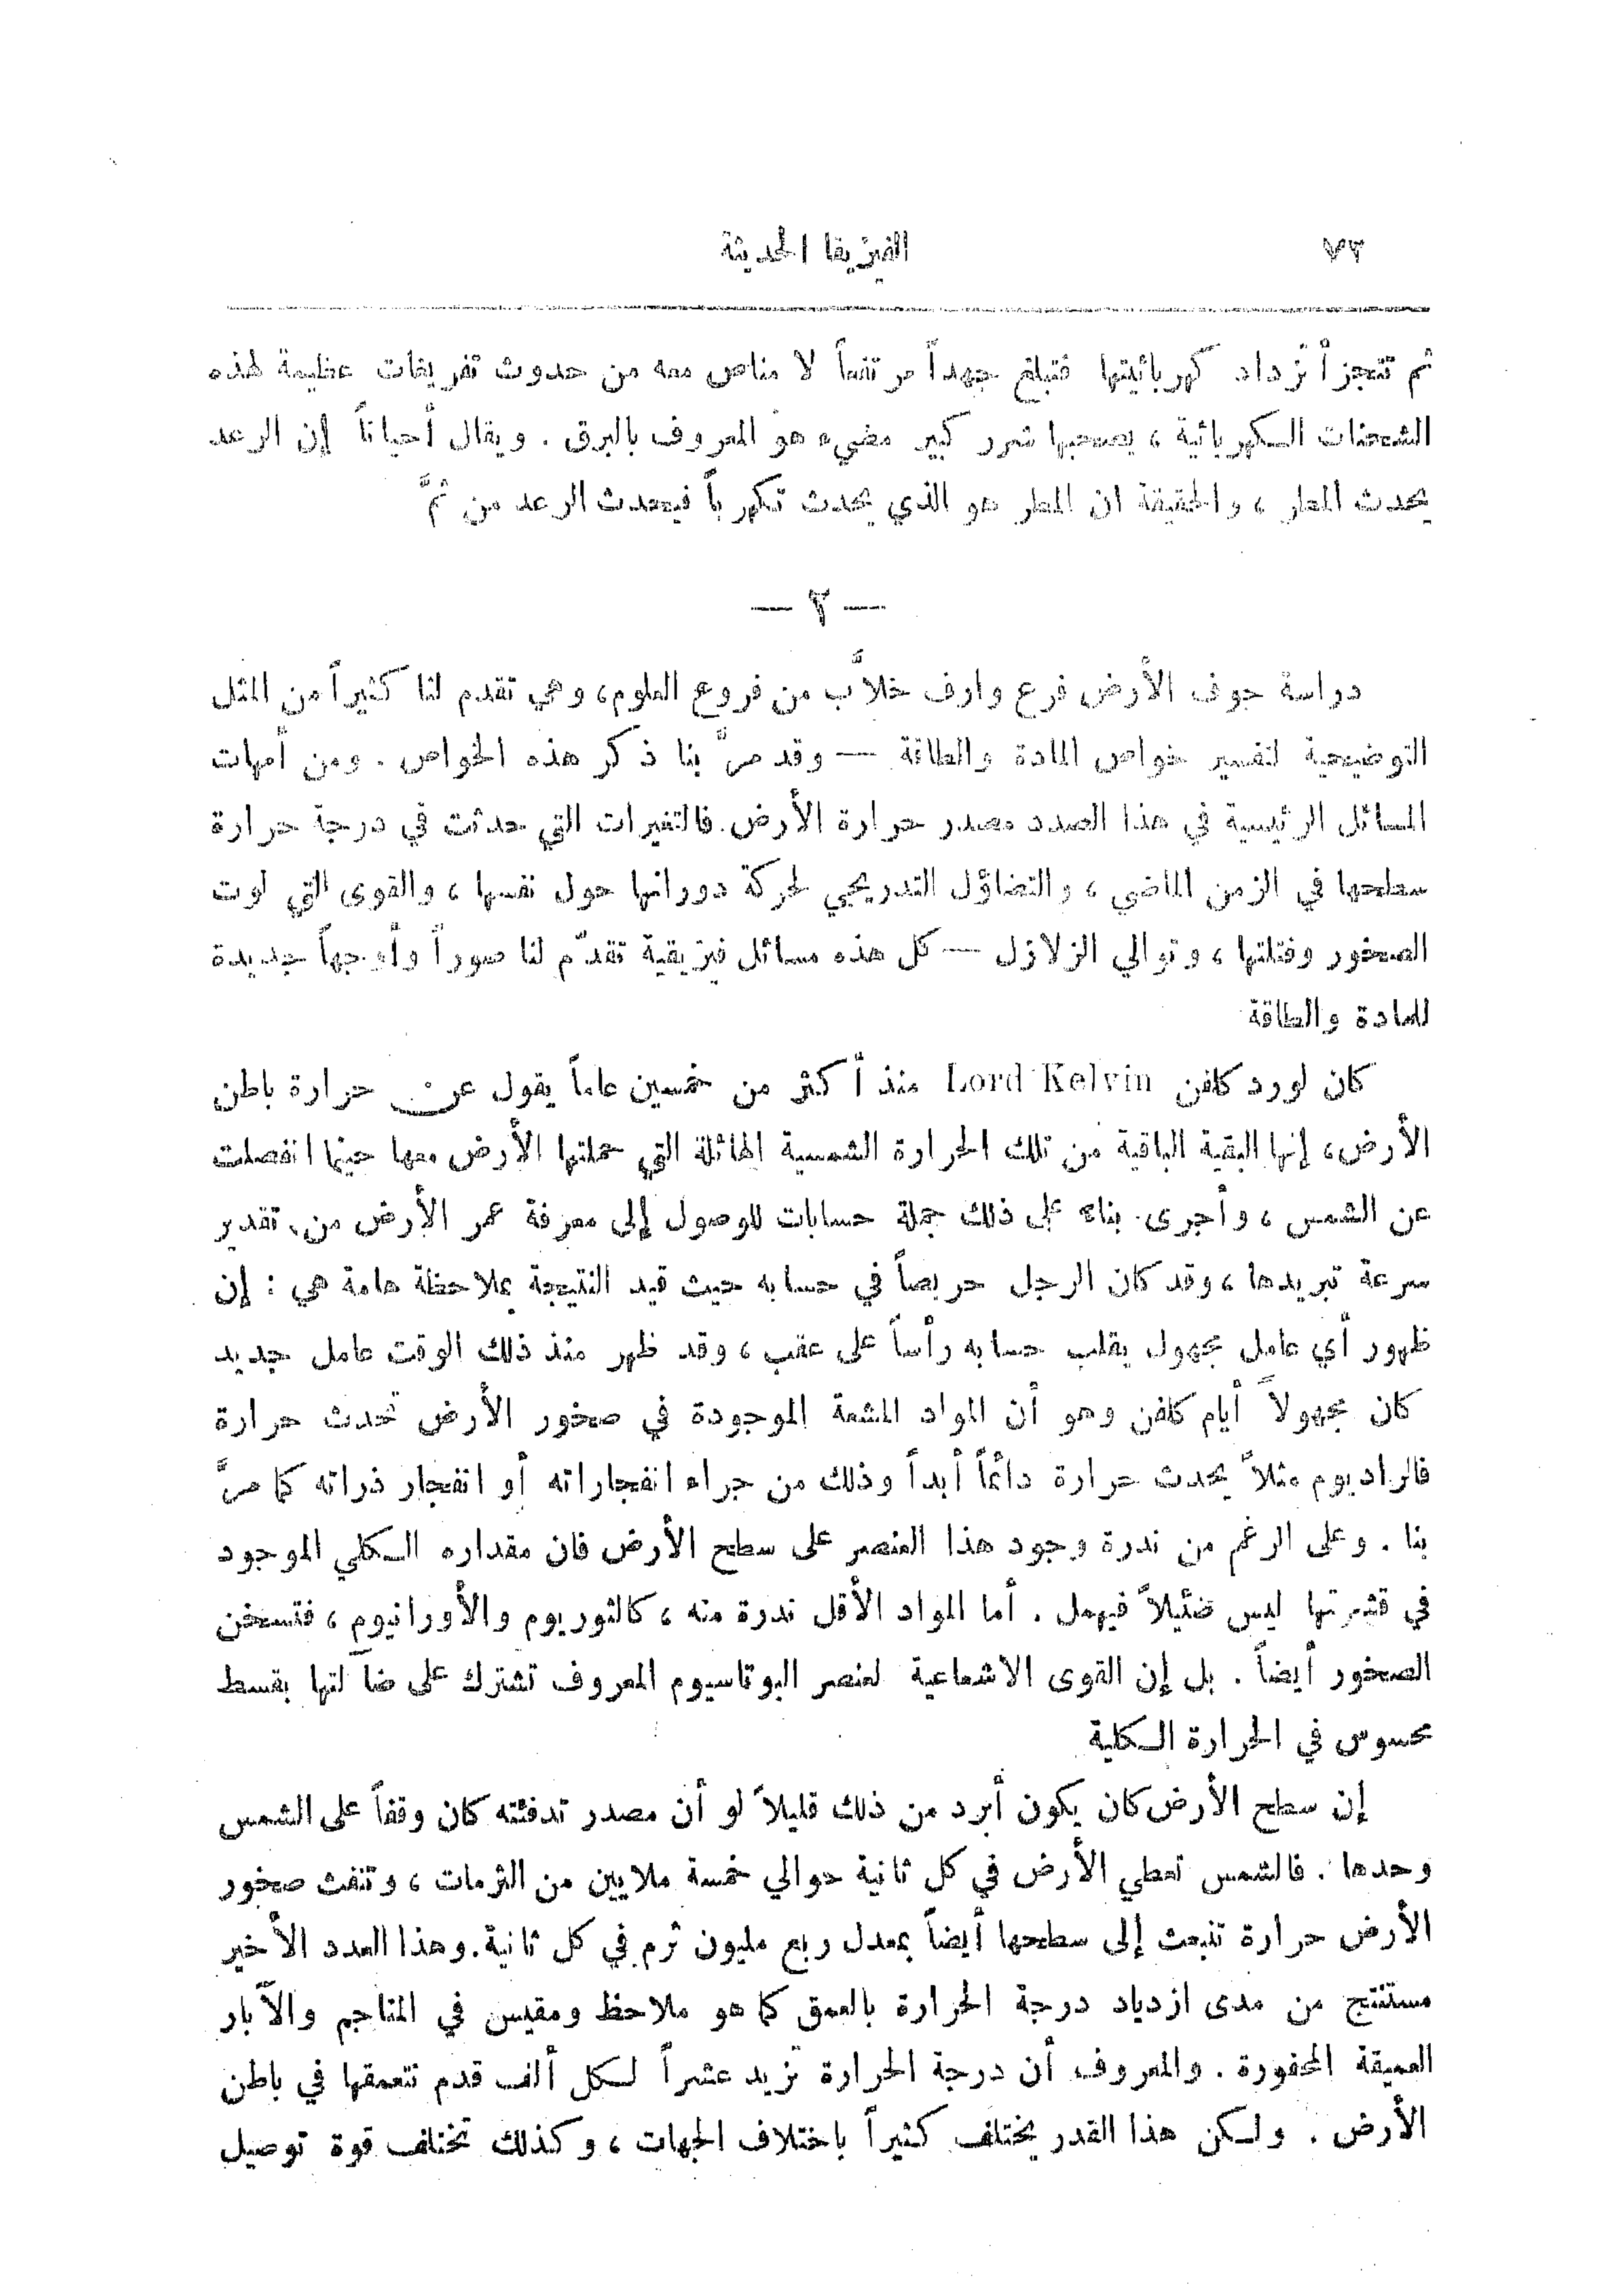 الفيزيقا الحديثة
ثم تتجزأ تزداد كهربائيتها فتبلغ جهداً مرتفعاً لا مناص معه من حدوث تفريغات عظيمة لهذه
الشحنات الكهربائية ، يصحبها شرر كبير مضيء هو المعروف بالبرق . ويقال أحياناً إن الرعد
يحدث المطر ، والحقيقة ان المطر هو الذي يحدث تكهرباً فيحدث الرعد من ثمَّ
— ٢ —
دراسة جوف الأرض فرع وارف خلاَّب من فروع العلوم، وهي تقدم لنا كثيراً من المثل
التوضيحية لتفسير خواص المادة والطاقة — وقد مرَّ بنا ذكر هذه الخواص . ومن أمهات
المسائل الرئيسية في هذا الصدد مصدر حرارة الأرض. فالتغيرات التي حدثت في درجة حرارة
سطحها في الزمن الماضي ، والتضاؤل التدريجي لحركة دورانها حول نفسها ، والقوى التي لوت
الصخور وفتلتها ، وتوالي الزلازل — كل هذه مسائل فيزيقية تقدّم لنا صوراً وأوجهاً جديدة
للمادة والطاقة
كان لورد كلفن Lord Kelvin منذ أكثر من خمسين عاماً يقول عن حرارة باطن
الأرض، إنها البقية الباقية من تلك الحرارة الشمسية الهائلة التي حملتها الأرض معها حينما انفصلت
عن الشمس ، وأجرى بناء على ذلك جملة حسابات للوصول إلى معرفة عمر الأرض من تقدير
سرعة تبريدها ، وقد كان الرجل حريصاً في حسابه حيث قيد النتيجة بملاحظة هامة هي : إن
ظهور أي عامل مجهول يقلب حسابه رأساً على عقب ، وقد ظهر منذ ذلك الوقت عامل جديد
كان مجهولاً أيام كلفن وهو أن المواد المشعة الموجودة في صخور الأرض تحدث حرارة
فالراديوم مثلاً يحدث حرارة دائماً أبداً وذلك من جراء انفجاراته أو انفجار ذراته كما مرَّ
بنا . وعلى الرغم من ندرة وجود هذا العنصر على سطح الأرض فان مقداره الكلي الموجود
في قشرتها ليس ضئيلاً فيهمل . أما المواد الأقل ندرة منه ، كالثوريوم والأورانيوم ، فتسخن
الصخور أيضاً . بل إن القوى الاشعاعية لعنصر البوتاسيوم المعروف تشترك على ضآلتها بقسط
محسوس في الحرارة الكلية
إن سطح الأرض كان يكون أبرد من ذلك قليلاً لو أن مصدر تدفئته كان وقفاً على الشمس
وحدها . فالشمس تعطي الأرض في كل ثانية حوالي خمسة ملايين من الثرمات ، وتنفث صخور
الأرض حرارة تنبعث إلى سطحها أيضاً بمعدل ربع مليون ثرم في كل ثانية. وهذا العدد الأخير
مستنتج من مدى ازدياد درجة الحرارة بالعمق كما هو ملاحظ ومقيس في المناجم والآبار
العميقة المحفورة . والمعروف أن درجة الحرارة تزيد عشراً لكل ألف قدم نتعمقها في باطن
الأرض . ولكن هذا القدر يختلف كثيراً باختلاف الجهات ، وكذلك تختلف قوة توصيل